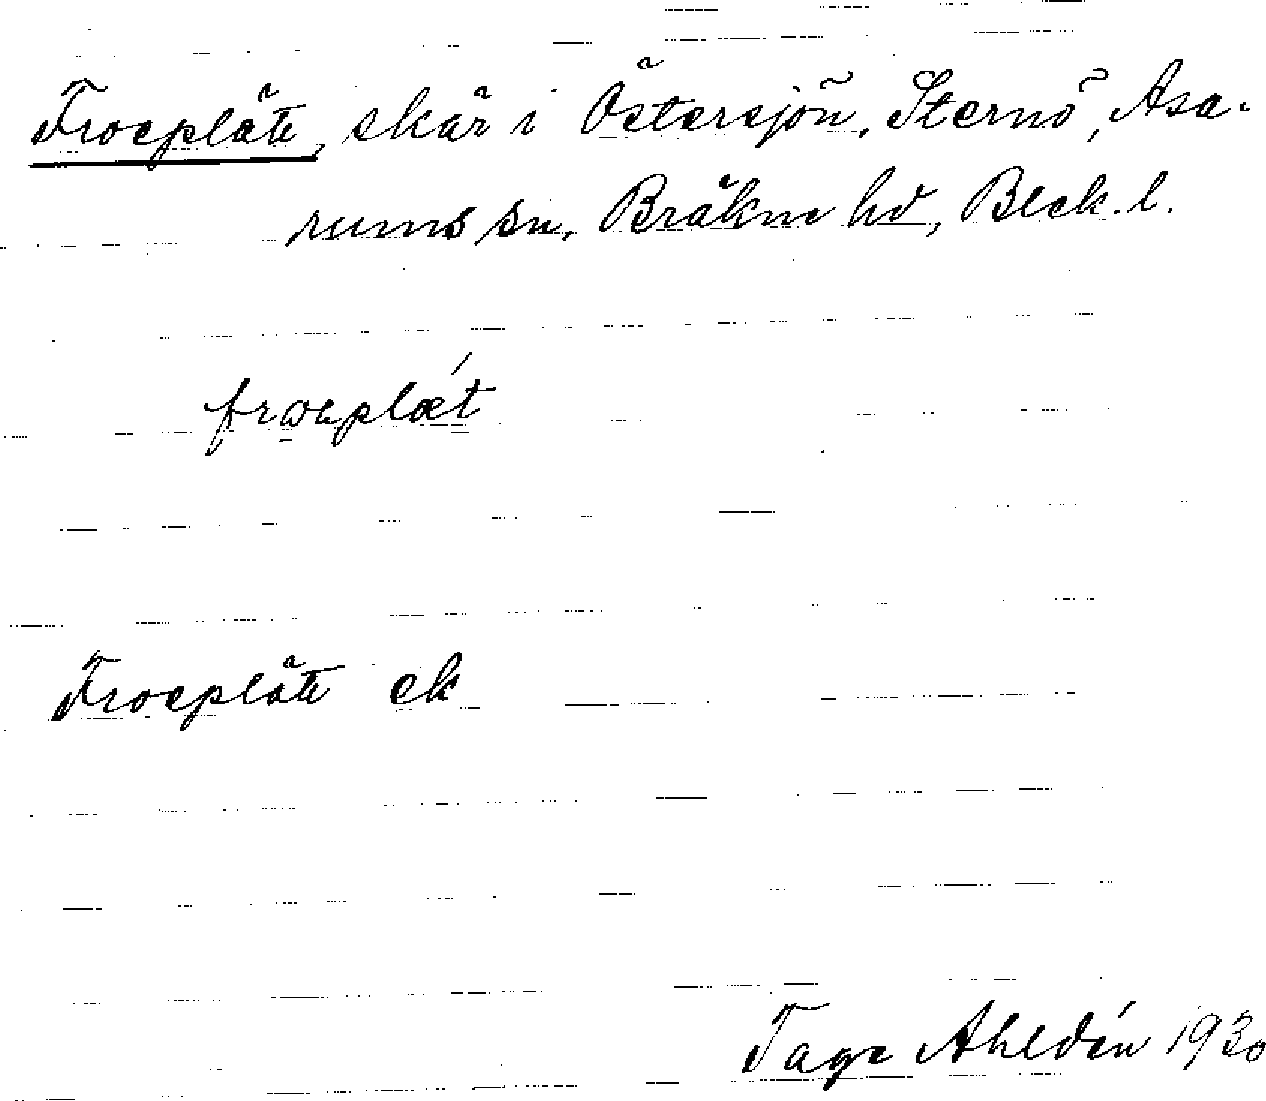 Froeplätt, skär i Östersjön, Sternö, Asa-
rums sn, Bräkne hd, Blek. l.
froeplæ´t
Froeplätt ek
Tage Ahldén 1930